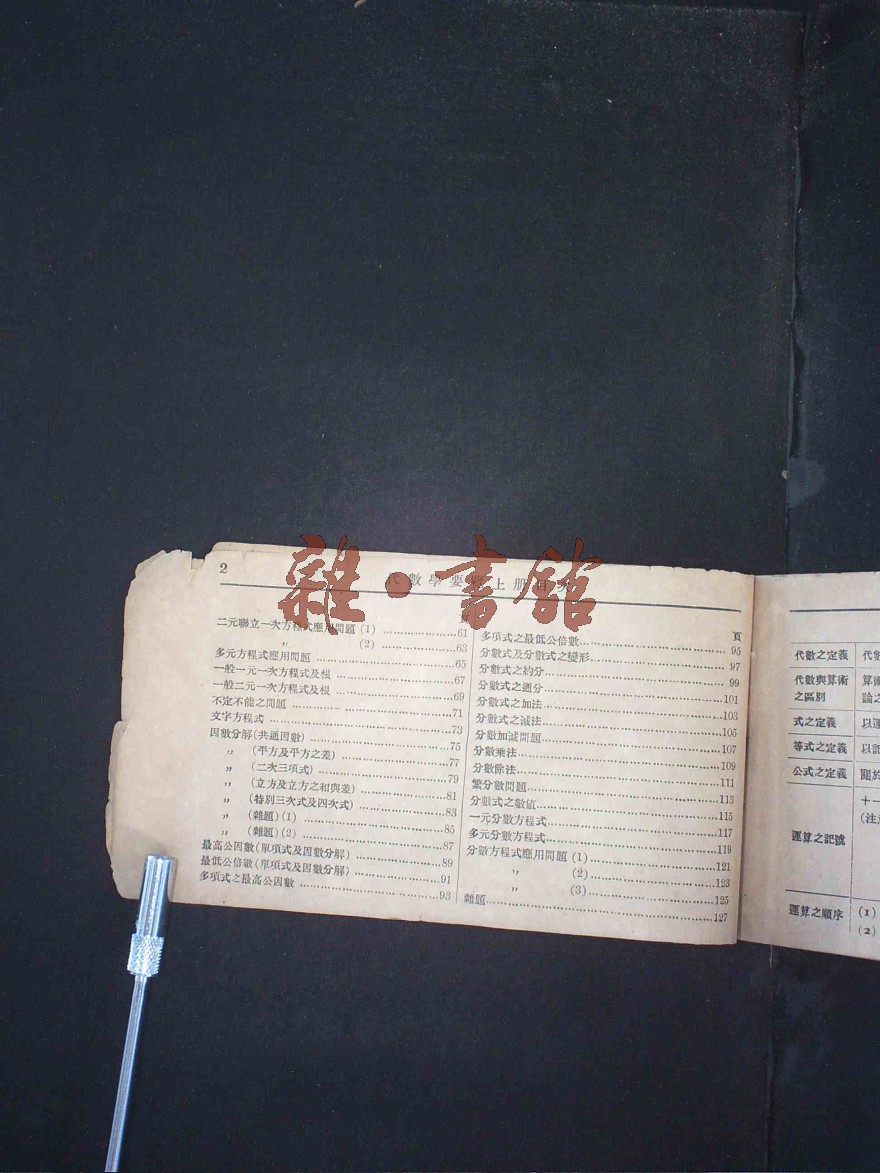 雜·書館
2
代數學要 上册目次
頁
二元聯立一次方程式應用問題 (1) ..................61
〃 (2) ..................63
多元方程式應用問題 ..................65
一般一元一次方程式及根 ..................67
一般二元一次方程式及根 ..................69
不定不能之問題 ..................71
文字方程式 ..................73
因數分解(共通因數) ..................75
〃 (平方及平方之差) ..................77
〃 (二次三項式) ..................79
〃 (立方及立方之和與差) ..................81
〃 (特別三次式及四次式) ..................83
〃 (雜題)(1) ..................85
〃 (雜題)(2) ..................87
最高公因數(單項式及因數分解) ..................89
最低公倍數(單項式及因數分解) ..................91
多項式之最高公因數 ..................93
頁
多項式之最低公倍數..................95
分數式及分數式之變形..................97
分數式之約分..................99
分數式之通分..................101
分數式之加法..................103
分數式之減法..................105
分數加減問題..................107
分數乘法..................109
分數除法..................111
繁分數問題..................113
分數式之數值..................115
一元分數方程式..................117
多元分數方程式..................119
分數方程式應用問題 (1)..................121
〃 (2)..................123
〃 (3)..................125
雜題..................127
代數之定義 代數
代數與算術 算術
之區別 論之
式之定義 以運
等式之定義 以記
公式之定義 關於
十一
運算之記號 (注意
運算之順序 (1)
(2)